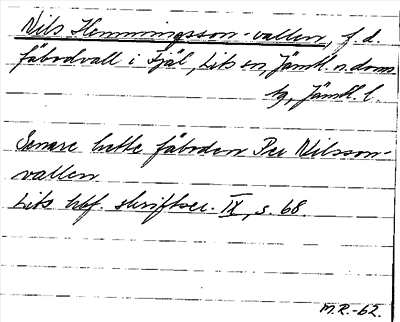 Nils Hemmingsson-vallen, f.d.
fäbodvall i Fjäl, Lits sn, Jämtl. n. doms
sg, Jämtl. l.
Senare hette fäboden Per Nilsson-
vallen
Lits hbf. skriftser. IX, s. 68.
M.R.-62.